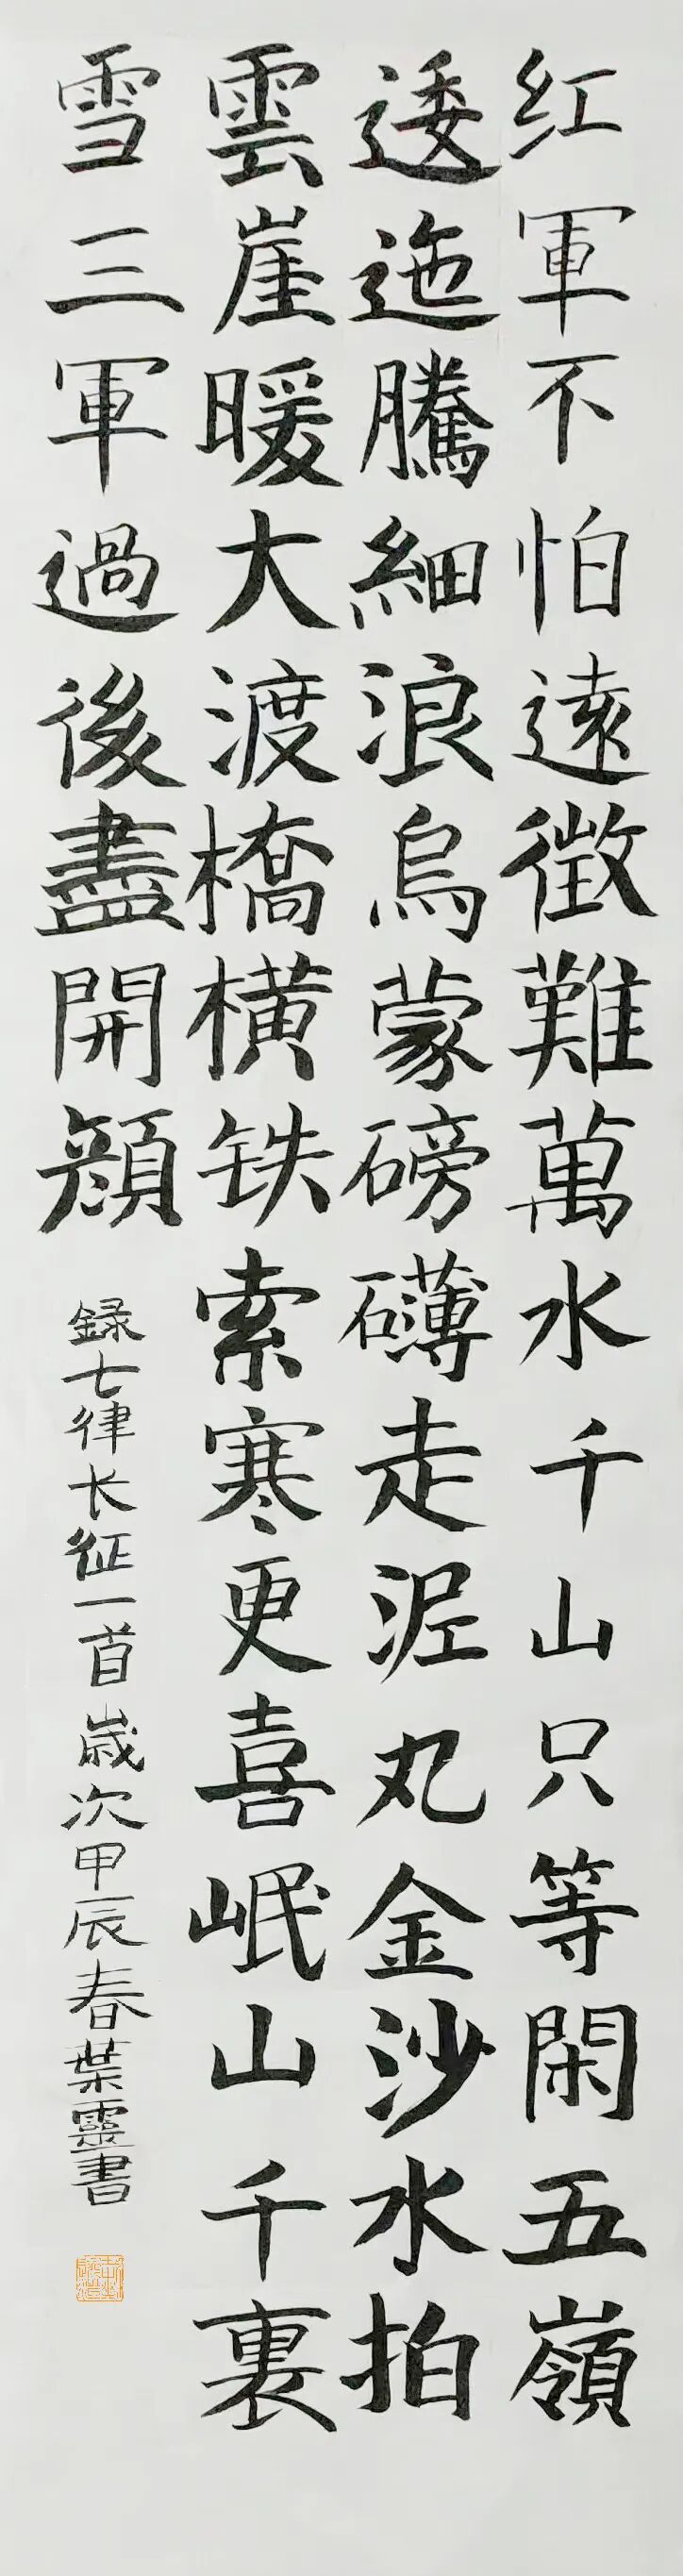 红軍不怕遠徵難萬水千山只等閑五嶺
逶迤騰細浪烏蒙磅礴走泥丸金沙水拍
雲崖暖大渡橋横铁索寒更喜岷山千裏
雪三軍過後盡開顔
録七律长征一首歲次甲辰春葉靈書